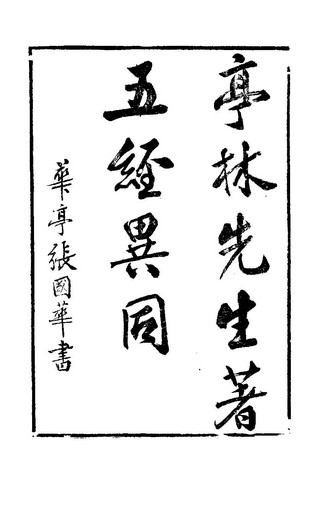 亭林先生著
五經異同
華亭張國華書